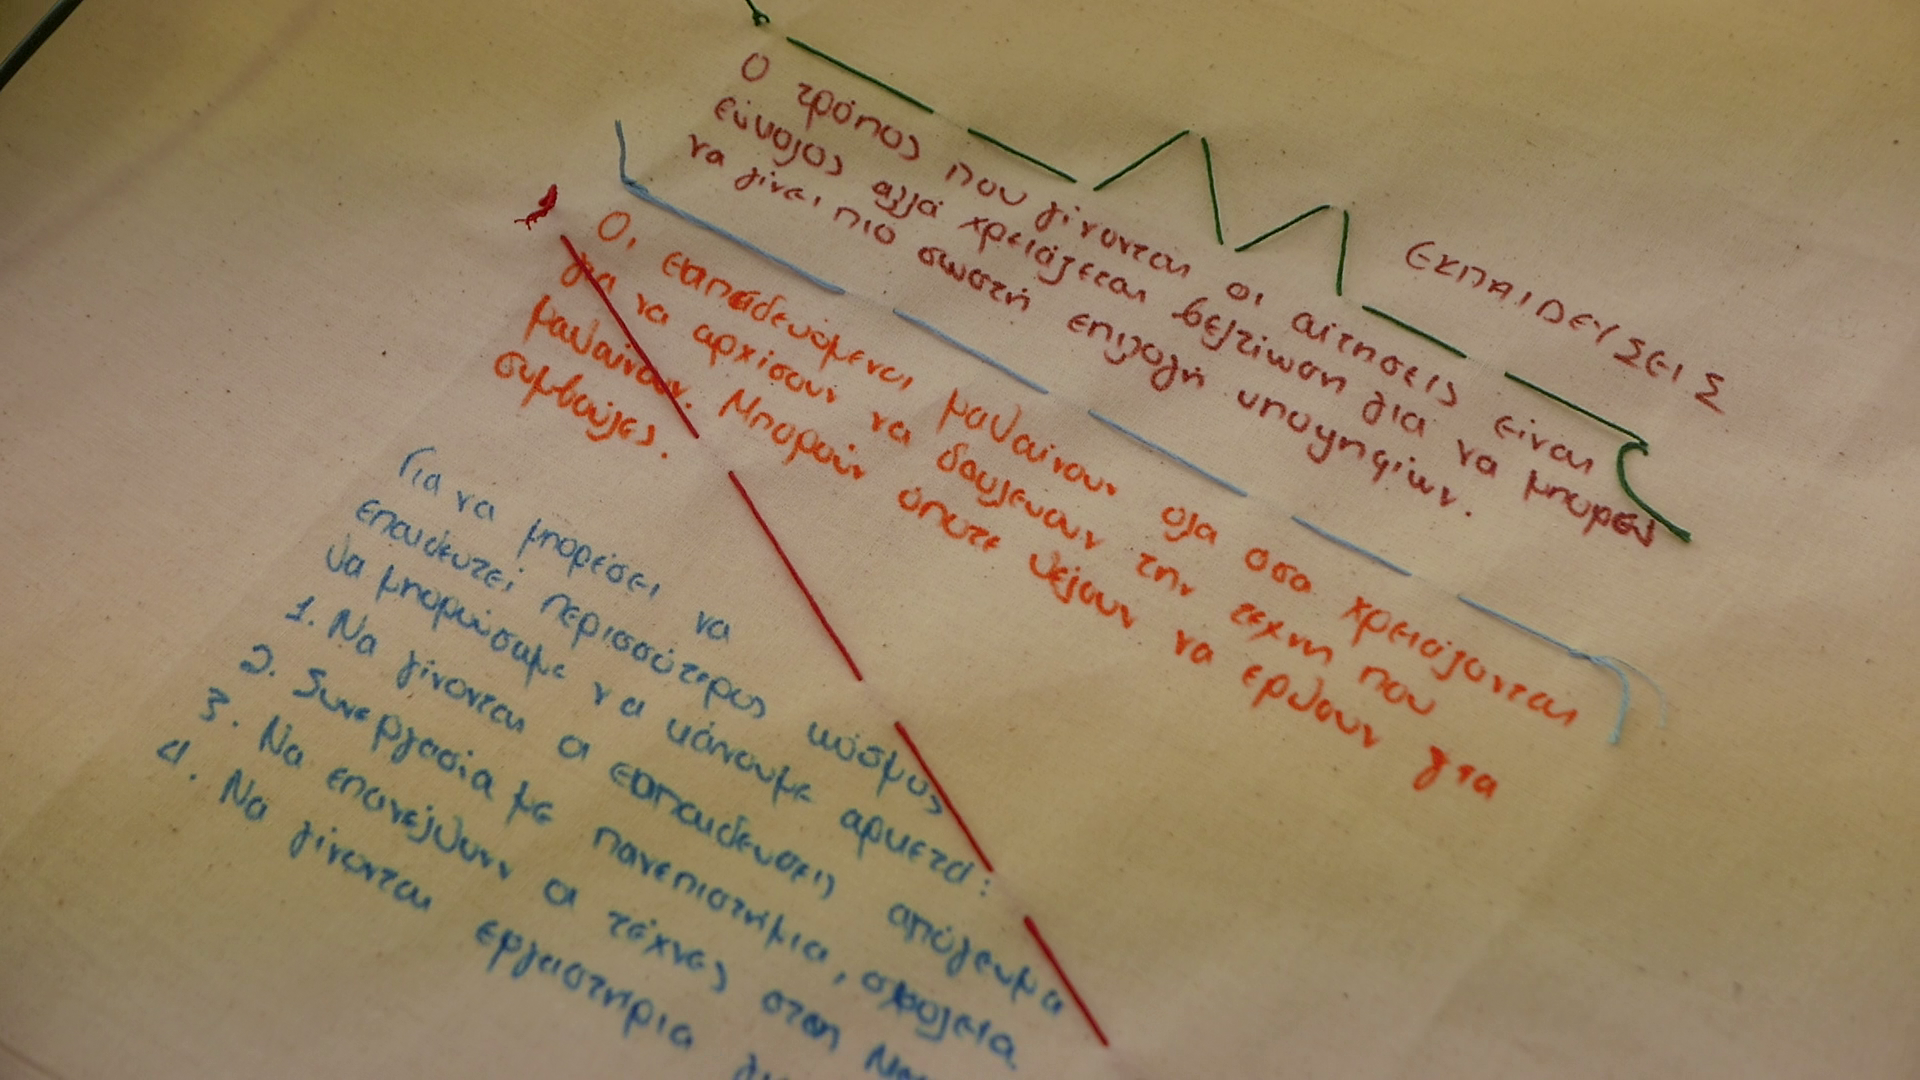 ΕΚΠΑΙΔΕΥΣΕΙΣ
Ο τρόπος που γίνονται οι αίτησεις είναι
εύκολος αλλά χρειάζεται βελτίωση για να μπορεί
να γίνει πιο σωστή επιλογή υποψηφίων.
Οι εκπαιδευόμενοι μαθαίνουν όλα όσα χρειάζονται
για να αρχίσουν να δουλεύουν την τεχνη που
μαθαίνουν. Μπορούν όποτε θέλουν να ερθουν για
συμβουλες.
Για να μπορέσει να
επαιδευτεί περισσότερος κόσμος
θα μπορούσαμε να κάνουμε αρκετά:
1. Να γίνονται οι εκπαιδευσεις απόγευμα
2. Συνεργασία με πανεπιστήμια, σχολεία
3. Να επανελθουν οι τέχνες στην
4. Να γίνονται εργαστήρια